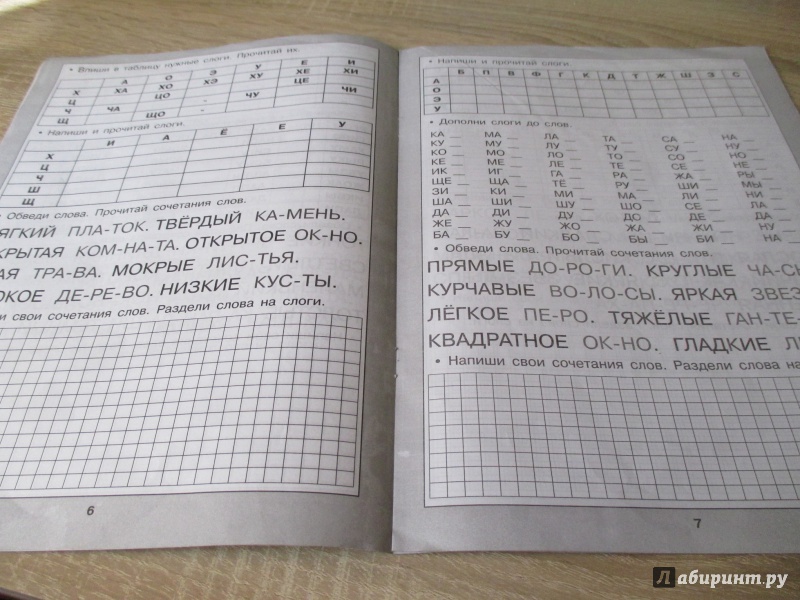 • Впиши в таблицу нужные слоги. Прочитай их.
А О Э У Е И
Х ХА ХО ХЭ ХУ ХЕ ХИ
Ц ЦО - ЦЕ
Ч ЧА - ЧУ ЧИ
Щ ЩО -
• Напиши и прочитай слоги.
И А Ё Е У
Х
Ц
Ч
Ш
Щ
• Обведи слова. Прочитай сочетания слов.
ЯГКИЙ ПЛА-ТОК. ТВЁРДЫЙ КА-МЕНЬ.
КРЫТАЯ КОМ-НА-ТА. ОТКРЫТОЕ ОК-НО.
АЯ ТРА-ВА. МОКРЫЕ ЛИС-ТЬЯ.
ОКОЕ ДЕ-РЕ-ВО. НИЗКИЕ КУС-ТЫ.
и свои сочетания слов. Раздели слова на слоги.
6
• Напиши и прочитай слоги.
Б П В Ф Г К Д Т Ж Ш З С
А
О
Э
У
• Дополни слоги до слов.
КА __ МА __ ЛА __ ТА __ СА __ НА __
КУ __ МУ __ ЛУ __ ТУ __ СУ __ НУ __
КО __ МО __ ЛО __ ТО __ СО __ НО __
КЕ __ МЕ __ ЛЕ __ ТЕ __ СЕ __ НЕ __
ИК __ ИГ __ ГА __ РА __ ЖА __ РЫ __
ЩЕ __ ЩА __ ТЕ __ РУ __ ШИ __ МЫ __
ЗИ __ КИ __ МИ __ МА __ ЛИ __ НИ __
ША __ ШИ __ ШУ __ ШО __ СЕ __ ЛА __
ДА __ ДИ __ ДУ __ ДО __ ДЕ __ ДА __
ЖЕ __ ЖУ __ ЖО __ ЖА __ ЖИ __ НУ __
БА __ БУ __ БО __ БЫ __ БИ __ НА __
• Обведи слова. Прочитай сочетания слов.
ПРЯМЫЕ ДО-РО-ГИ. КРУГЛЫЕ ЧА-СЫ
КУРЧАВЫЕ ВО-ЛО-СЫ. ЯРКАЯ ЗВЕЗ
ЛЁГКОЕ ПЕ-РО. ТЯЖЁЛЫЕ ГАН-ТЕ-
КВАДРАТНОЕ ОК-НО. ГЛАДКИЕ Л
• Напиши свои сочетания слов. Раздели слова на
7
Лабиринт.ру